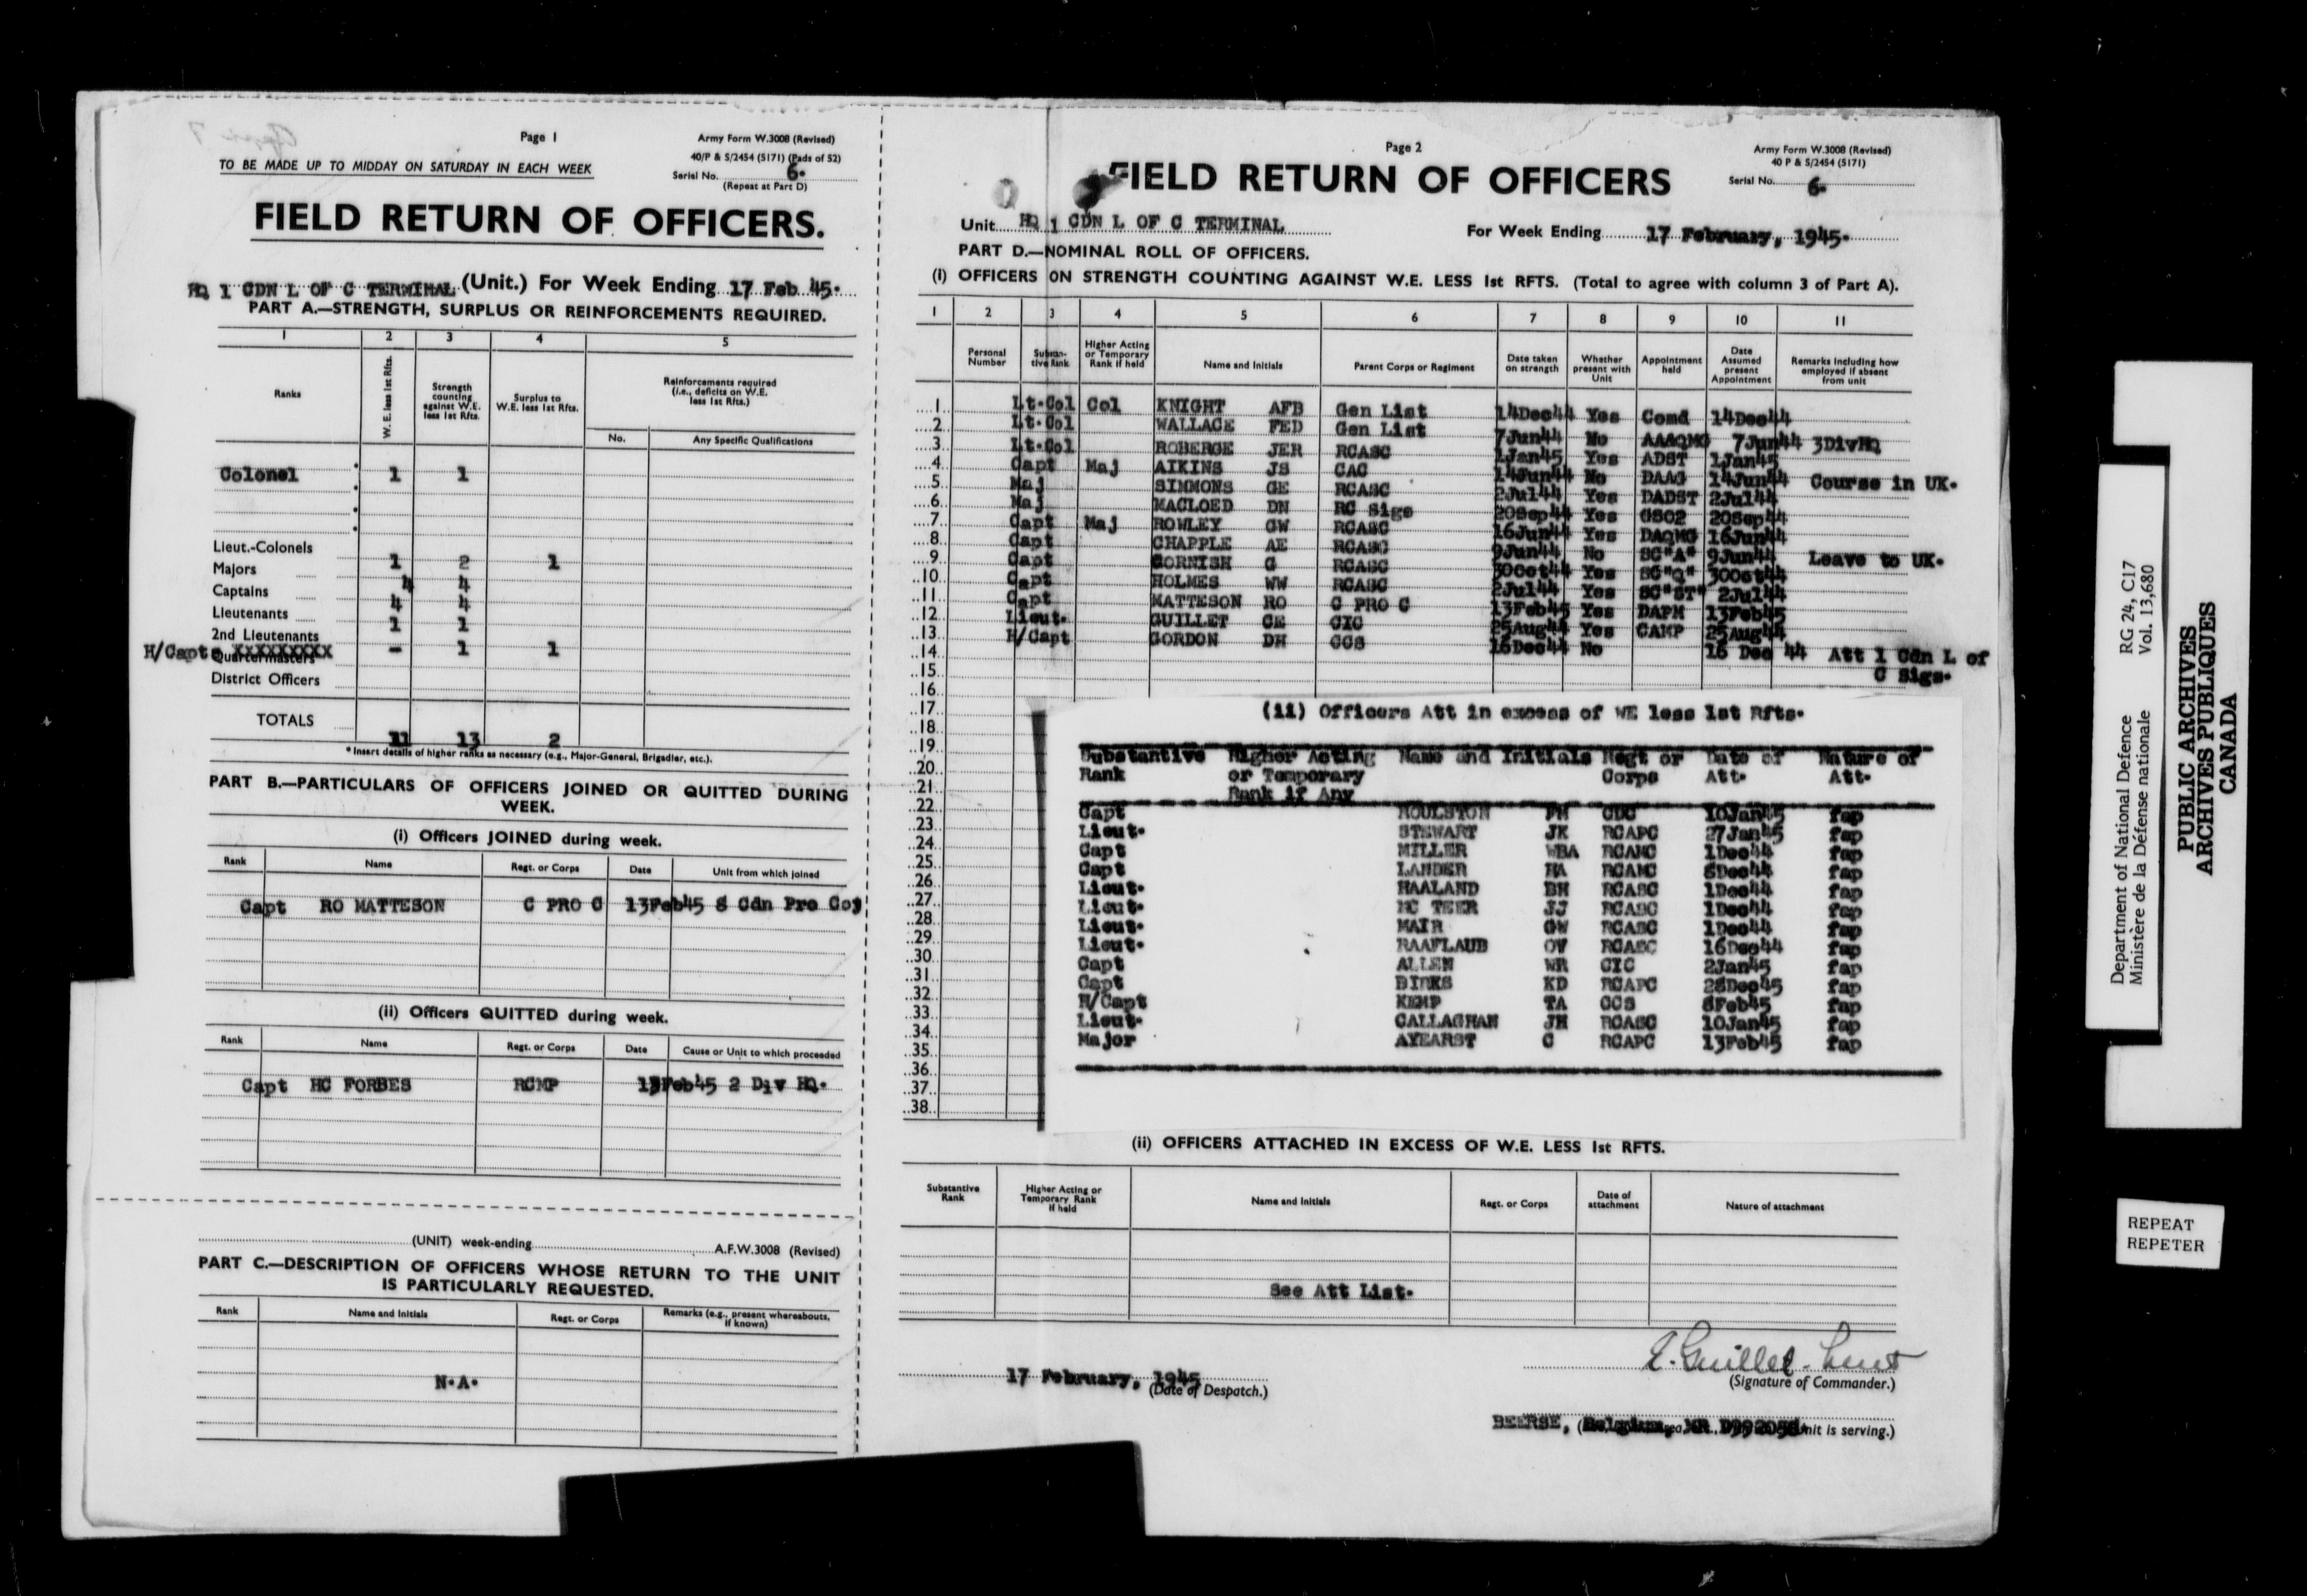 Page 1
Army Form W.3008 (Revised)
40/P & S/2454 (5171) (Pads of 52)
TO BE MADE UP TO MIDDAY ON SATURDAY IN EACH WEEK
Serial No. 6.
(Repeat at Part D)
FIELD RETURN OF OFFICERS.
HQ 1 CDN L OF C TERMINAL (Unit.) For Week Ending 17 Feb 45.
PART A.—STRENGTH, SURPLUS OR REINFORCEMENTS REQUIRED.
1 2 3 4 5
Ranks W. E. less 1st Rfts. Strength counting against W.E. less 1st Rfts. Surplus to W.E. less 1st Rfts. Reinforcements required (i.e., deficits on W.E. less 1st Rfts.)
No. Any Specific Qualifications
Colonel 1 1
Lieut.-Colonels 1 2 1
Majors 4 4
Captains 4 4
Lieutenants 1 1
2nd Lieutenants
H/Capts XXXXXXXXX - 1 1
Quartermasters
District Officers
TOTALS 11 13 2
* Insert details of higher ranks as necessary (e.g., Major-General, Brigadier, etc.).
PART B.—PARTICULARS OF OFFICERS JOINED OR QUITTED DURING
WEEK.
(i) Officers JOINED during week.
Rank Name Regt. or Corps Date Unit from which joined
Capt RO MATTESON C PRO C 13Feb45 8 Cdn Pro Coy
(ii) Officers QUITTED during week.
Rank Name Regt. or Corps Date Cause or Unit to which proceeded
Capt HC FORBES RCMP 13Feb45 2 Div HQ.
(UNIT) week-ending A.F.W.3008 (Revised)
PART C.—DESCRIPTION OF OFFICERS WHOSE RETURN TO THE UNIT
IS PARTICULARLY REQUESTED.
Rank Name and Initials Regt. or Corps Remarks (e.g., present whereabouts, if known)
N.A.
Page 2
Army Form W.3008 (Revised)
40 P & S/2454 (5171)
Serial No. 6.
FIELD RETURN OF OFFICERS
Unit HQ 1 CDN L OF C TERMINAL For Week Ending 17 February, 1945.
PART D.—NOMINAL ROLL OF OFFICERS.
(i) OFFICERS ON STRENGTH COUNTING AGAINST W.E. LESS 1st RFTS. (Total to agree with column 3 of Part A).
1 2 3 4 5 6 7 8 9 10 11
Personal Number Substantive Rank Higher Acting or Temporary Rank if held Name and Initials Parent Corps or Regiment Date taken on strength Whether present with Unit Appointment held Date Assumed present Appointment Remarks including how employed if absent from unit
1 Lt.Col Col KNIGHT AFB Gen List 14Dec44 Yes Comd 14Dec44
2 Lt.Col WALLACE FED Gen List 7Jun44 No AAAQMG 7Jun44 3DivHQ
3 Lt.Col ROBERGE JER RCASC 1Jan45 Yes ADST 1Jan45
4 Capt Maj AIKINS JS CAC 14Jun44 No DAAG 14Jun44 Course in UK.
5 Maj SIMMONS GE RCASC 2Jul44 Yes DADST 2Jul44
6 Maj MACLOED DN RC Sigs 20Sep44 Yes GSO2 20Sep44
7 Capt Maj ROWLEY GW RCASC 16Jun44 Yes DAQMG 16Jun44
8 Capt CHAPPLE AE RCASC 9Jun44 No SC"A" 9Jun44 Leave to UK.
9 Capt CORNISH G RCASC 30Oct44 Yes SC"Q" 30Oct44
10 Capt HOLMES WW RCASC 2Jul44 Yes SC"ST" 2Jul44
11 Capt MATTESON RO C PRO C 13Feb45 Yes DAPM 13Feb45
12 Lieut. GUILLET CE CIC 25Aug44 Yes CAMP 25Aug44
13 H/Capt GORDON DH CCS 16Dec44 No 16 Dec 44 Att 1 Cdn L of
14
C Sigs.
15
16
17
18
19
20
21
22
23
24
25
26
27
28
29
30
31
32
33
34
35
36
37
38
(ii) Officers Att in excess of WE less 1st Rfts.
Substantive Higher Acting Name and Initials Regt or Date of Nature of
Rank or Temporary Corps Att. Att.
Rank if Any
Capt ROULSTON CDC 10Jan45 fap
Lieut. STEWART JK RCAPC 27Jan45 fap
Capt MILLER WBA RCAMC 1Dec44 fap
Capt LANDER HA RCAMC Dec44 fap
Lieut. HAALAND BH RCASC 1Dec44 fap
Lieut. MC TEER JJ RCASC 1Dec44 fap
Lieut. MAIR GW RCASC 1Dec44 fap
Lieut. RAAFLAUB OV RCASC 16Dec44 fap
Capt ALLEN WR CIC 2Jan45 fap
Capt BIRKS KD RCAPC 28Dec45 fap
H/Capt KEMP TA CCS 8Feb45 fap
Lieut. CALLAGHAN JH RCASC 10Jan45 fap
Major AYEARST C RCAPC 13Feb45 fap
(ii) OFFICERS ATTACHED IN EXCESS OF W.E. LESS 1st RFTS.
Substantive Rank Higher Acting or Temporary Rank if held Name and Initials Regt. or Corps Date of attachment Nature of attachment
See Att List.
17 February, 1945
(Date of Despatch.)
C. Guillet. Lieut
(Signature of Commander.)
BEERSE, Belgium, MR D992056 unit is serving.)
Department of National Defence RG 24, C17
Ministère de la Défense nationale Vol. 13,680
PUBLIC ARCHIVES
ARCHIVES PUBLIQUES
CANADA
REPEAT
REPETER